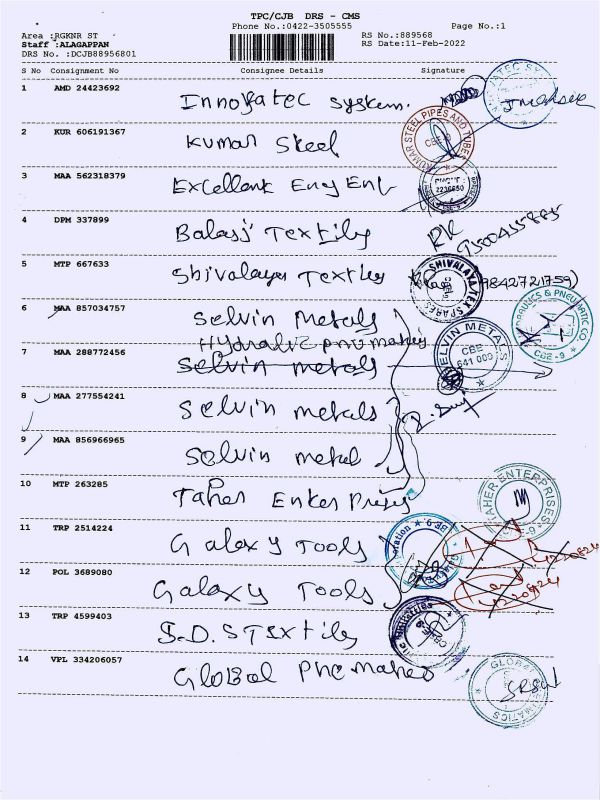 TPC/CJB DRS - CMS
Phone No.:0422-3505555 Page No.:1
Area :RGKNR ST RS No.:889568
Staff :ALAGAPPAN RS Date:11-Feb-2022
DRS No. :DCJB88956801
S No Consignment No Consignee Details Signature
1 AMD 24423692 Innovatec System.
2 KUR 606191367 Kumar Steel
KUMAR STEEL PIPES AND TUBES
CBE-9
3 MAA 562318379 Excellent Eng Ent
2236650
4 DPM 337899 Balaji Textiles
5 MTP 667633 Shivalaya Textiles (9842721759)
SHIVALAYA TEX SPARES
6 MAA 857034757 Selvin Metals
Hydralic pnumaties
7 MAA 288772456 Selvin metals
SELVIN METALS
CBE
641 009
8 MAA 277554241 Selvin metals
9 MAA 856966965 Selvin metal
10 MTP 263285 Taher Enterprises
TAHER ENTERPRISES
11 TRP 2514224 Galaxy Tools
12 POL 3689080 Galaxy Tools
13 TRP 4599403 S.D.S Textiles
14 VPL 334206057 Global Pnemaheo